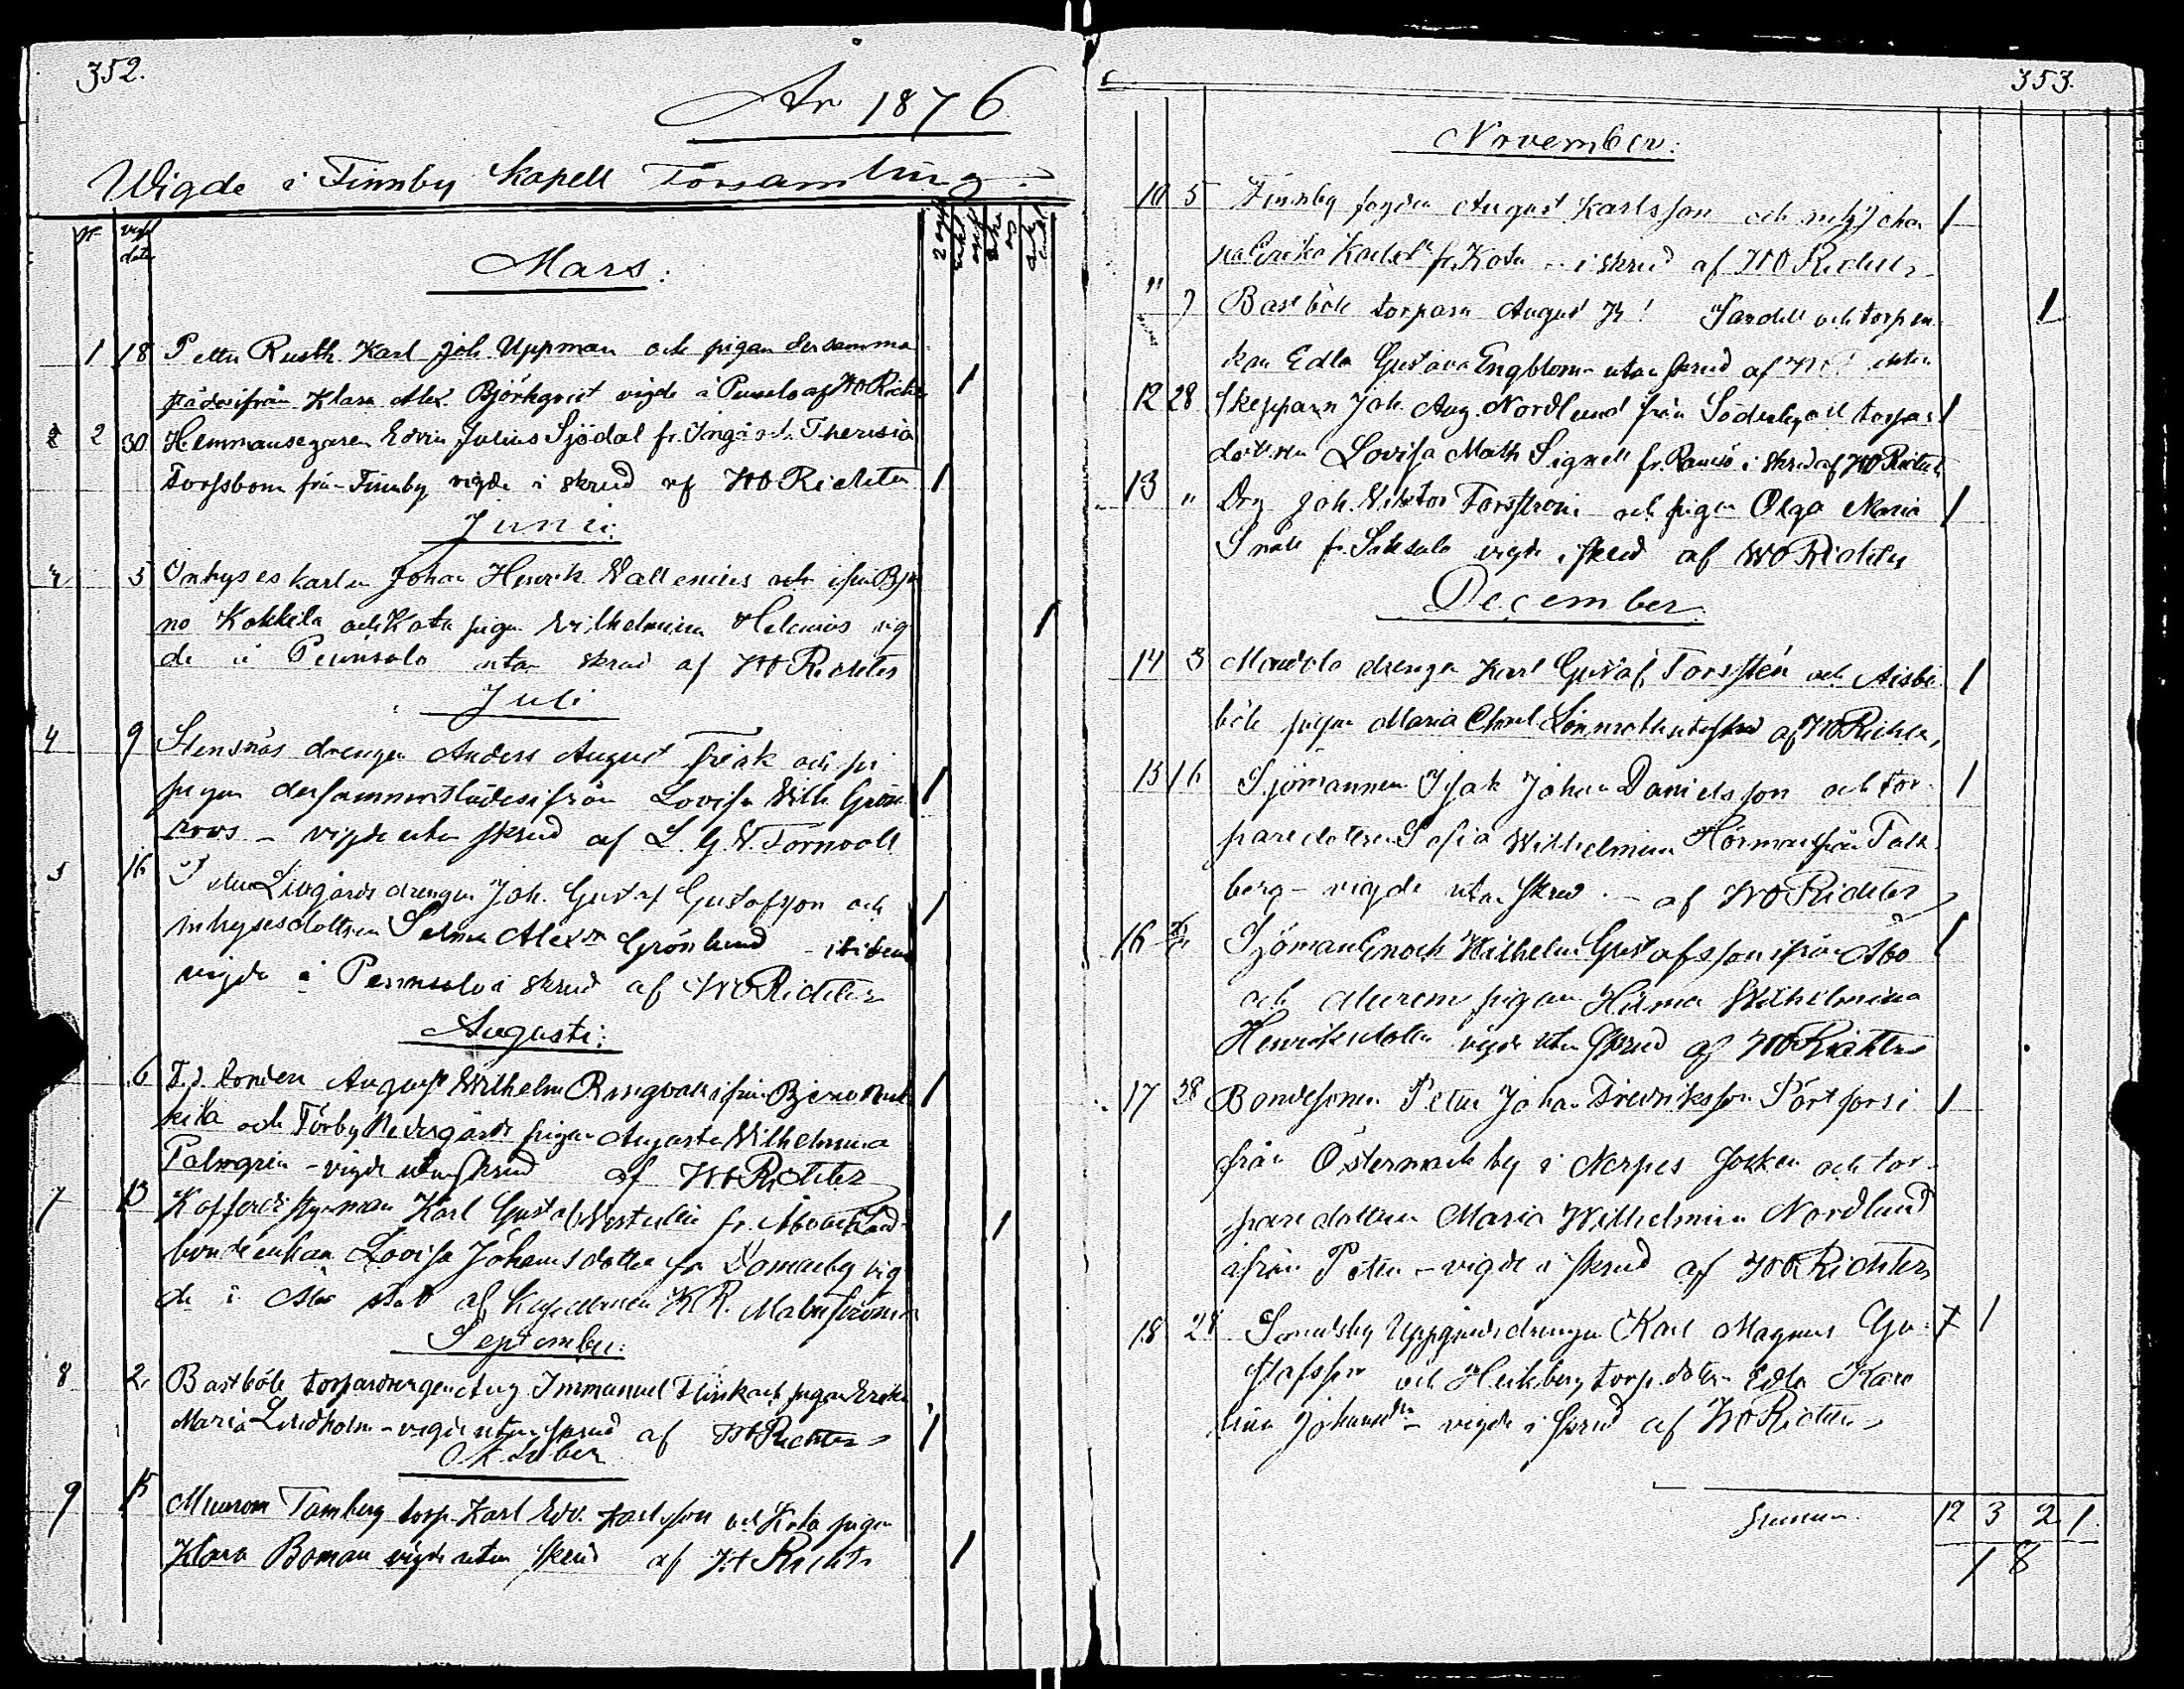 352.
År 1876
Wigde i Finnby Kapell Församling.
N vigs dato
Mars:
1 18 Petter Rusth. Karl Joh. Uppman och pigan dersamma
städesifrån Klara Alex. Björkqvist vigde i af WORichter
2 30 Hemmansegaren Edvin Julius Sjödal fr. Ingå och Theresia
Forssbom från Finnby vigde i skrud af WO Richter 1
Junii:
3 5 Inhyseskarlen Johan Henrik Wallenius och ifrån Bjer
no Kokkila och Kota pigan Wilhelmina Helenius vig 1
de i Pernsalo utan skrud af WO Richter
Juli
4 9 Stensnäs drengen Anders August Frisk och pi
pigan dersammastädesifrån Lovisa Wilh. Grön 1
roos - vigde utan skrud af L. G. W. Fornvall
5 16 Livgårds drengen Joh. Gustaf Gustafsson och 1
inhysesdottren Selma Alex:a Grönlund - ibidem
vigde i Pernsalo i skrud af WO Richter
Augusti:
6 F.d. bonden August Wilhelm Ringvall ifrån Bjerno 1
kila och Förby Nedergårds pigan Augusta Wilhelmina
Palmgren - vigde utan skrud af WO Richter
7 13 Kofferdi styrman Karl Gustaf Westerlin fr. Åbo och Land
bondeenkan Lovisa Johansdotter fr. Domarby vig 1
de i Åbo stad af Kapellanen K.R. Malmström
September:
8 2. Bastböle torparedrengen Aug. Immanuel Flink och pigan Erika
Maria Lindholm - vigde utan skrud af WO Richter 1
Oktober
9 15 Muurom Tamberg torp. Karl Edv. Karlsson och Kota pigan
Klara Boman vigde utan skrud af WO Richter 1
353.
November:
10 5 Finnby fogden August Karlsson och Johan 1
na Erika Karlsd:r fr. Kota - i skrud af WO Richter
" Bastböle torparn August Sardell och torparen
kan Edla Gustava Engblom utan skrud af 1
12 28 Skepparn Joh. Aug. Nordlund från Söderby och torpar 1
dottren Lovisa Math. Signell fr. i skrud af WO Richter
13 " Drg Joh. Viktor Forsström och pigan Olga Maria 1
Snäll fr. Saksalo vigde i skrud af WO Richter
December
14 3 drengen Karl Gustaf Forsstén och Aisbö 1
böle pigan Maria Lönnroth utan skrud af WO Richter,
15 16 Sjömannen Isak Johan Danielsson och tor 1
paredottren Sofia Wilhelmina Hörman från Falk
berg - vigde utan skrud. - af WO Richter
16 Sjöman Enoch Wilhelm Gustafsson ifrån Åbo 1
och pigan Hilma Wilhelmina
Henriksdotter vigde utan skrud af WO Richter
17 28 Bondesonen Petter Johan Fredriksson Pörtfors i 1
från Östermark by i Nerpes socken och tor
paredottren Maria Wilhelmina Nordlund
ifrån Peten - vigde i skrud af WO Richter
18 28 Uppgårds drengen Karl Magnus Gu 1
stafsson och torp. dottren Edla Karo
lina Johansd:r - vigde i skrud af WO Richter
Summa 12 3 2 1
18